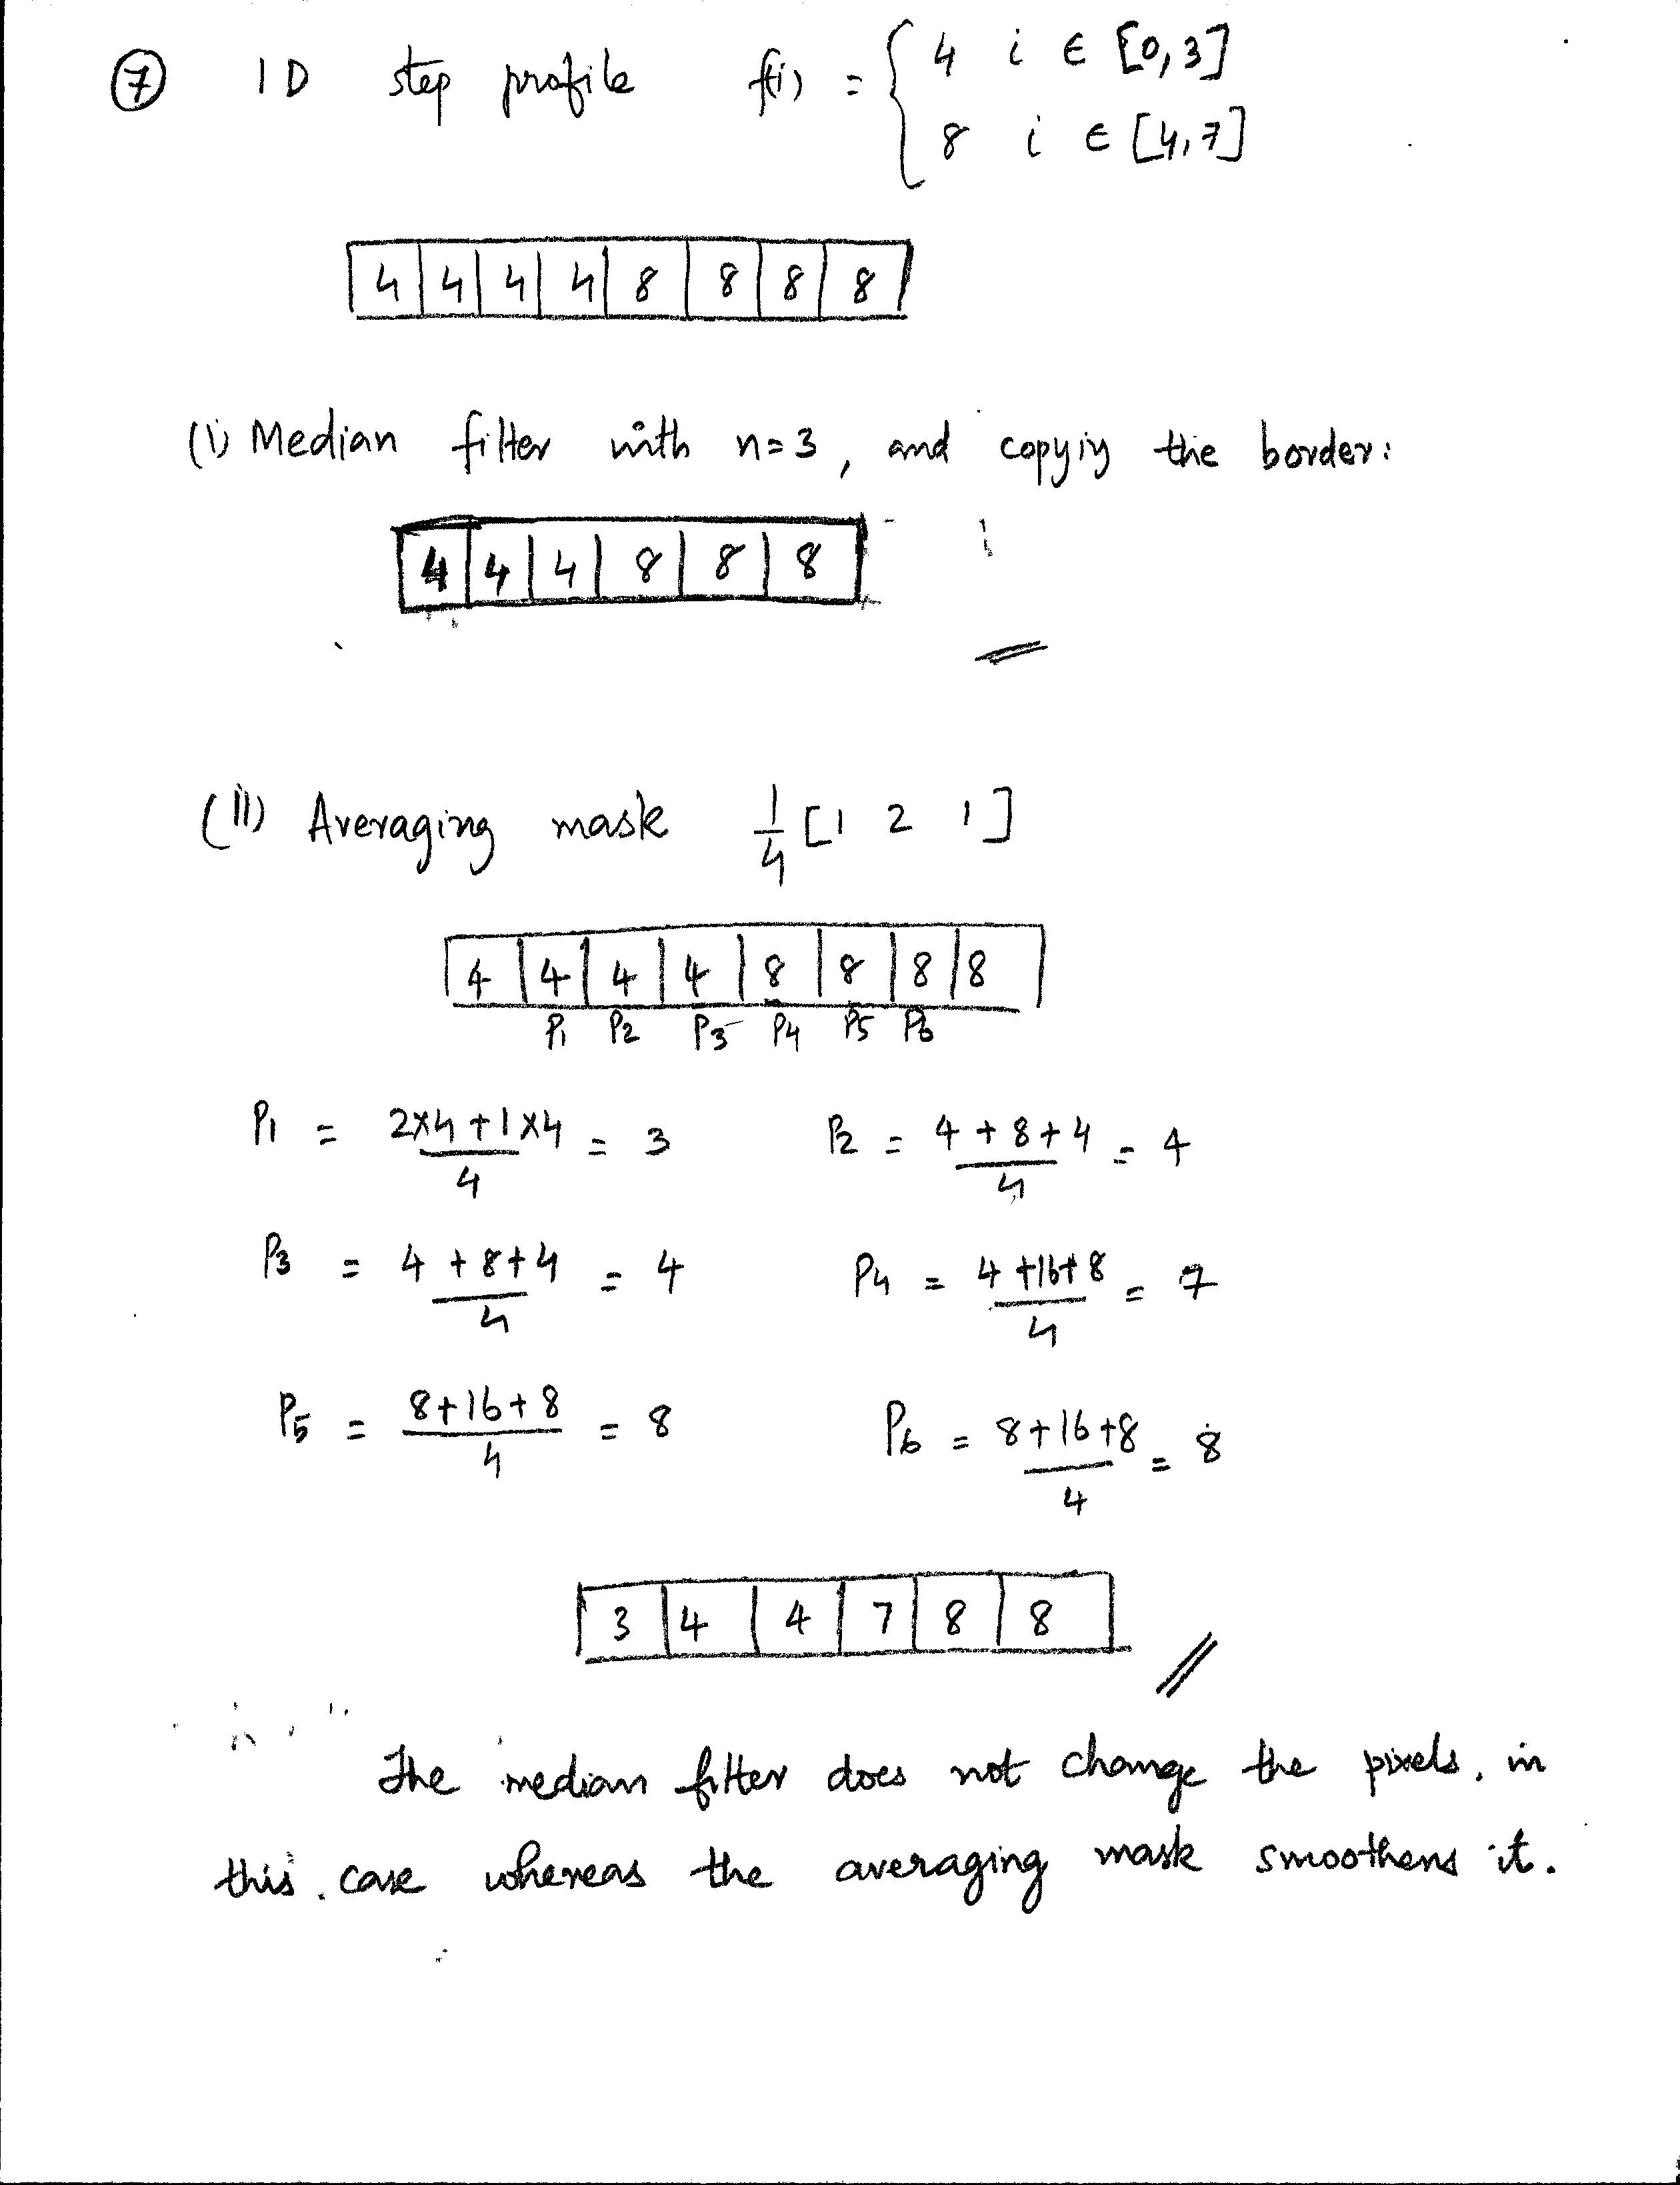 ⑦ 1D step profile f(i) = { 4 i ∈ [0,3]
8 i ∈ [4,7]
4 4 4 4 8 8 8 8
(i) Median filter with n=3, and copyig the border:
4 4 4 8 8 8
(ii) Averaging mask 1/4 [1 2 1]
4 4 4 4 8 8 8 8
P1 P2 P3 P4 P5 P6
P1 = 2×4+1×4 / 4 = 3 P2 = 4+8+4 / 4 = 4
P3 = 4+8+4 / 4 = 4 P4 = 4+16+8 / 4 = 7
P5 = 8+16+8 / 4 = 8 P6 = 8+16+8 / 4 = 8
3 4 4 7 8 8
The median filter does not change the pixels, in
this case whereas the averaging mask smoothens it.